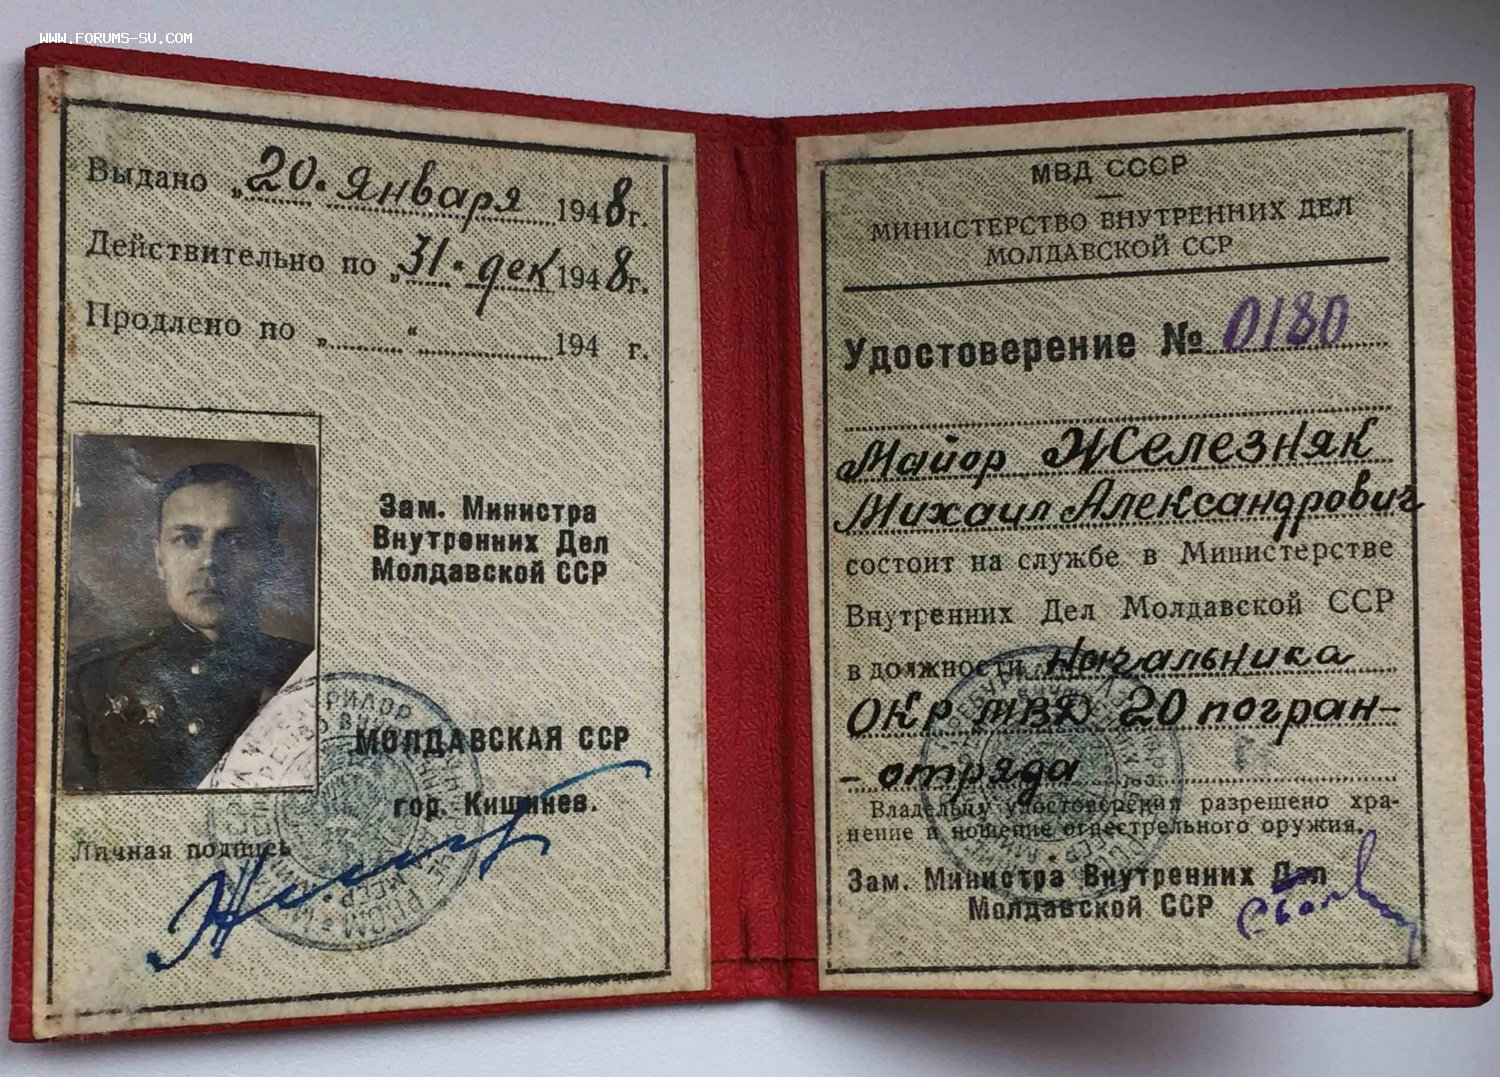 WWW.FORUMS-SU.COM
Выдано „20. Января 1948 г.
Действительно по „31. дек 1948 г.
Продлено по „ “ 194 г.
Зам. Министра
Внутренних Дел
Молдавской ССР
МОЛДАВСКАЯ ССР
гор. Кишинев.
Личная подпись
МВД СССР
МИНИСТЕРСТВО ВНУТРЕННИХ ДЕЛ
МОЛДАВСКОЙ ССР
Удостоверение № 0180
Майор Железняк
Михаил Александрович
состоит на службе в Министерстве
Внутренних Дел Молдавской ССР
в должности Начальника
ОКР МВД 20 погран-
-отряда
Владельцу удостоверения разрешено хра-
нение и ношение огнестрельного оружия.
Зам. Министра Внутренних Дел
Молдавской ССР